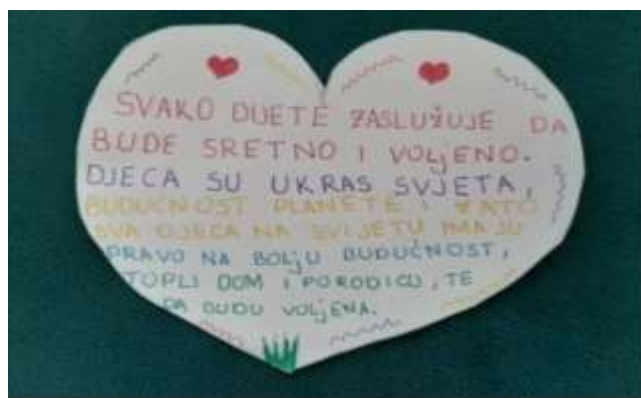 SVAKO DIJETE ZASLUŽUJE DA
BUDE SRETNO I VOLJENO.
DJECA SU UKRAS SVJETA,
BUDUĆNOST PLANETE I ZATO
SVA DJECA NA SVIJETU IMAJU
PRAVO NA BOLJU BUDUĆNOST,
TOPLI DOM I PORODICU, TE
DA BUDU VOLJENA.